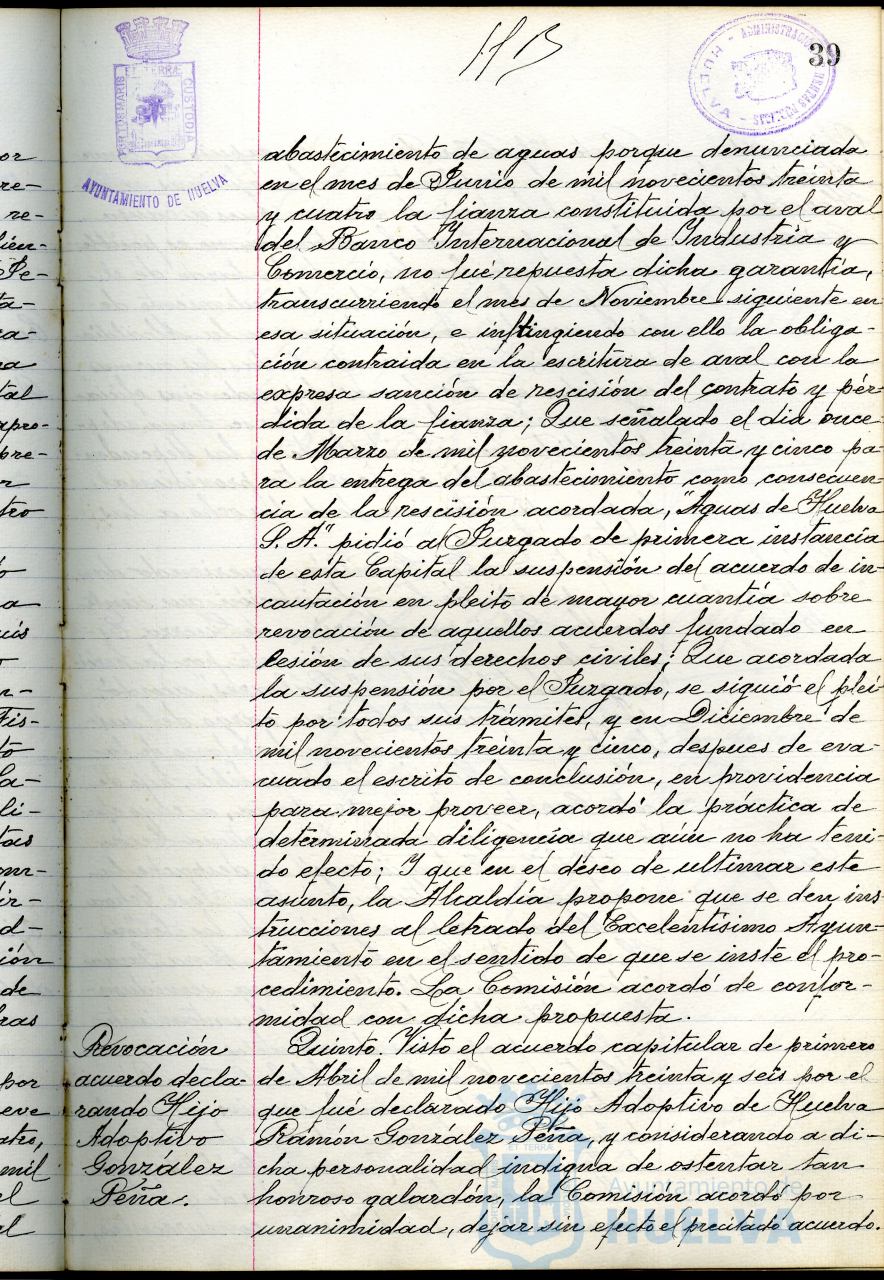 39
PORTUS MARIS ET TERRÆ CUSTODIA
AYUNTAMIENTO DE HUELVA
ADMINISTRACION
RENTAS PUBLICAS
HUELVA
abastecimiento de aguas porque denunciada
en el mes de Junio de mil novecientos treinta
y cuatro la fianza constituida por el aval
del Banco Internacional de Industria y
Comercio, no fué repuesta dicha garantía,
transcurriendo el mes de Noviembre siguiente en
esa situación, e infringiendo con ello la obliga-
ción contraida en la escritura de aval con la
expresa sanción de rescisión del contrato y pér-
dida de la fianza; Que señalado el dia once
de Marzo de mil novecientos treinta y cinco pa-
ra la entrega del abastecimiento como consecuen-
cia de la rescisión acordada, "Aguas de Huelva
S. A." pidió al Juzgado de primera instancia
de esta Capital la suspensión del acuerdo de in-
cautación en pleito de mayor cuantía sobre
revocación de aquellos acuerdos fundado en
lesión de sus derechos civiles; Que acordada
la suspensión por el Juzgado, se siguió el plei-
to por todos sus trámites, y en Diciembre de
mil novecientos treinta y cinco, despues de eva-
cuado el escrito de conclusión, en providencia
para mejor proveer, acordó la práctica de
determinada diligencia que aún no ha teni-
do efecto; Y que en el deseo de ultimar este
asunto, la Alcaldía propone que se den ins-
trucciones al letrado del Excelentísimo Ayun-
tamiento en el sentido de que se inste el pro-
cedimiento. La Comisión acordó de confor-
midad con dicha propuesta.
Revocación
acuerdo decla-
rando Hijo
Adoptivo
González
Peña.
Quinto. Visto el acuerdo capitular de primero
de Abril de mil novecientos treinta y seis por el
que fué declarado Hijo Adoptivo de Huelva
Ramón González Peña, y considerando a di-
cha personalidad indigna de ostentar tan
honroso galardón, la Comisión acordó por
unanimidad, dejar sin efecto el precitado acuerdo.
Ayuntamiento de
HUELVA